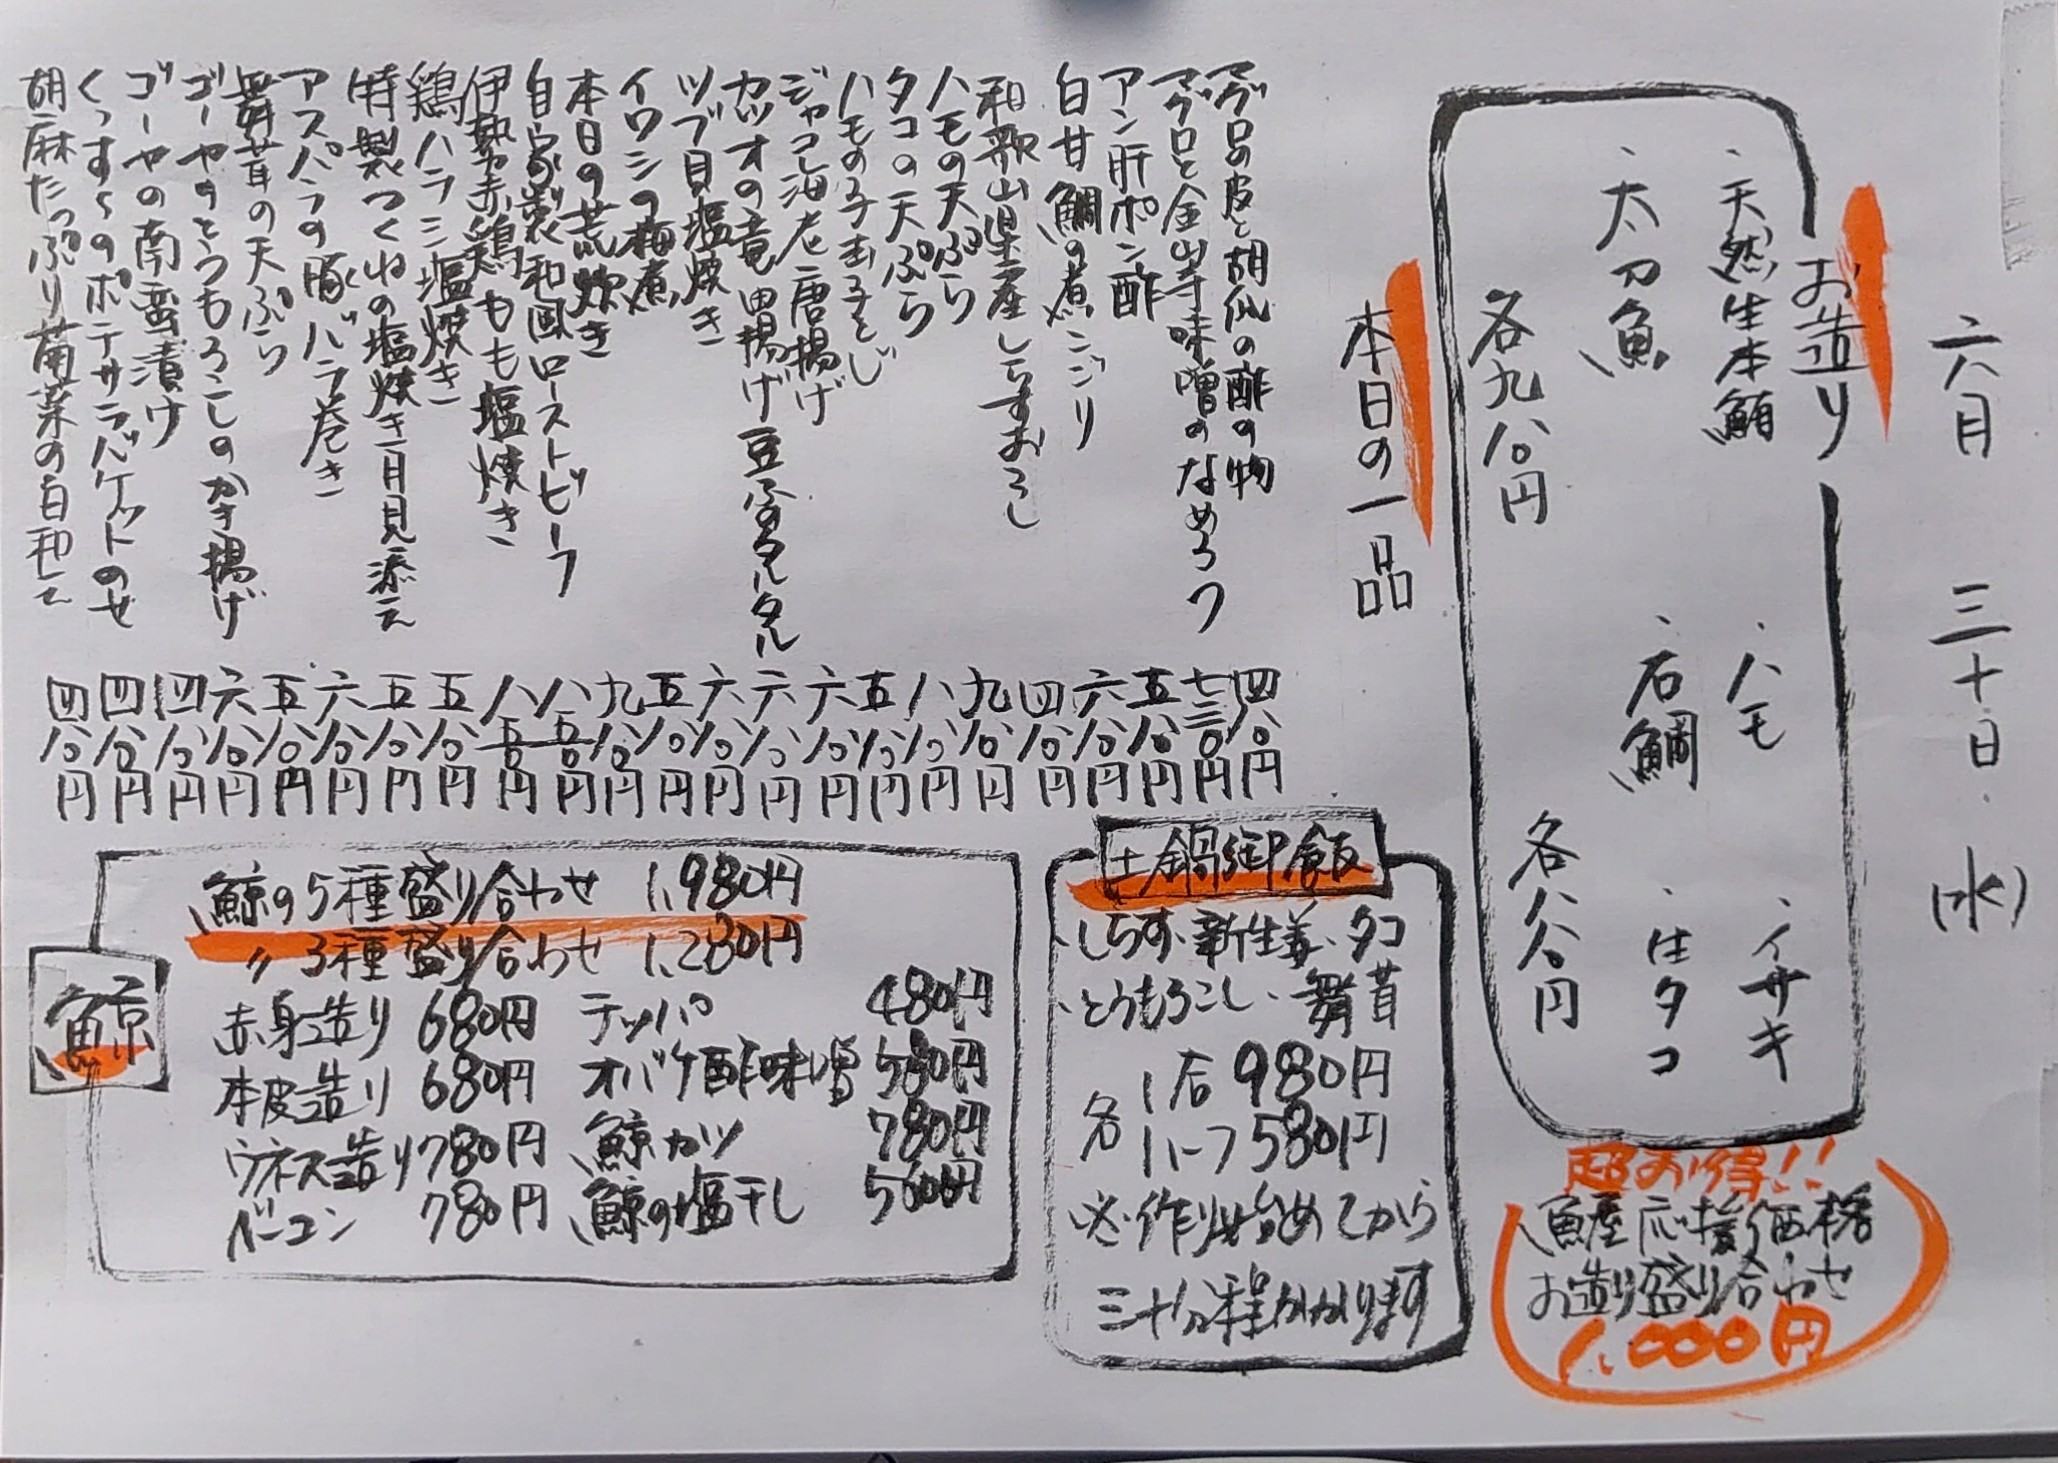 六月 三十日 (水)
お造り
・天然生本鮪 ・ハモ ・イサキ
・太刀魚 ・石鯛 ・生タコ
各九八〇円 各八八〇円
超お得!!
魚屋応援価格
お造り盛り合わせ
1,000円
本日の一品
マグロの皮と胡瓜の酢の物 四八〇円
マグロと金山寺味噌のなめろう 七三〇円
アン肝ポン酢 五八〇円
白甘鯛の煮こごり 六八〇円
和歌山県産しらすおろし 四八〇円
ハモの天ぷら 九八〇円
タコの天ぷら 八八〇円
ハモの子玉子とじ 五八〇円
ジャコ海老唐揚げ 六八〇円
カツオの竜田揚げ豆腐タルタル 六八〇円
ツブ貝塩焼き 六八〇円
イワシの梅煮 五八〇円
本日の荒炊き 九八〇円
自家製和風ローストビーフ 八五〇円
伊勢赤鶏もも塩焼き 八五〇円
鶏ハラミ塩焼き 五八〇円
特製つくねの塩焼き月見添え 五八〇円
アスパラの豚バラ巻き 六八〇円
舞茸の天ぷら 五八〇円
ゴーヤととうもろこしのかき揚げ 六八〇円
ゴーヤの南蛮漬け 四八〇円
くっす〜のポテサラバケットのせ 四八〇円
胡麻たっぷり菊菜の白和え 四八〇円
土鍋御飯
・しらす・新生姜・タコ
・とうもろこし・舞茸
各 1合 980円
ハーフ 580円
※作り始めてから
三十分程かかります
鯨
鯨の5種盛り合わせ 1,980円
〃3種盛り合わせ 1,280円
赤身造り 680円 テッパ 480円
本皮造り 680円 オバケ酢味噌 580円
ウネス造り 780円 鯨カツ 780円
ベーコン 780円 鯨の塩干し 500円